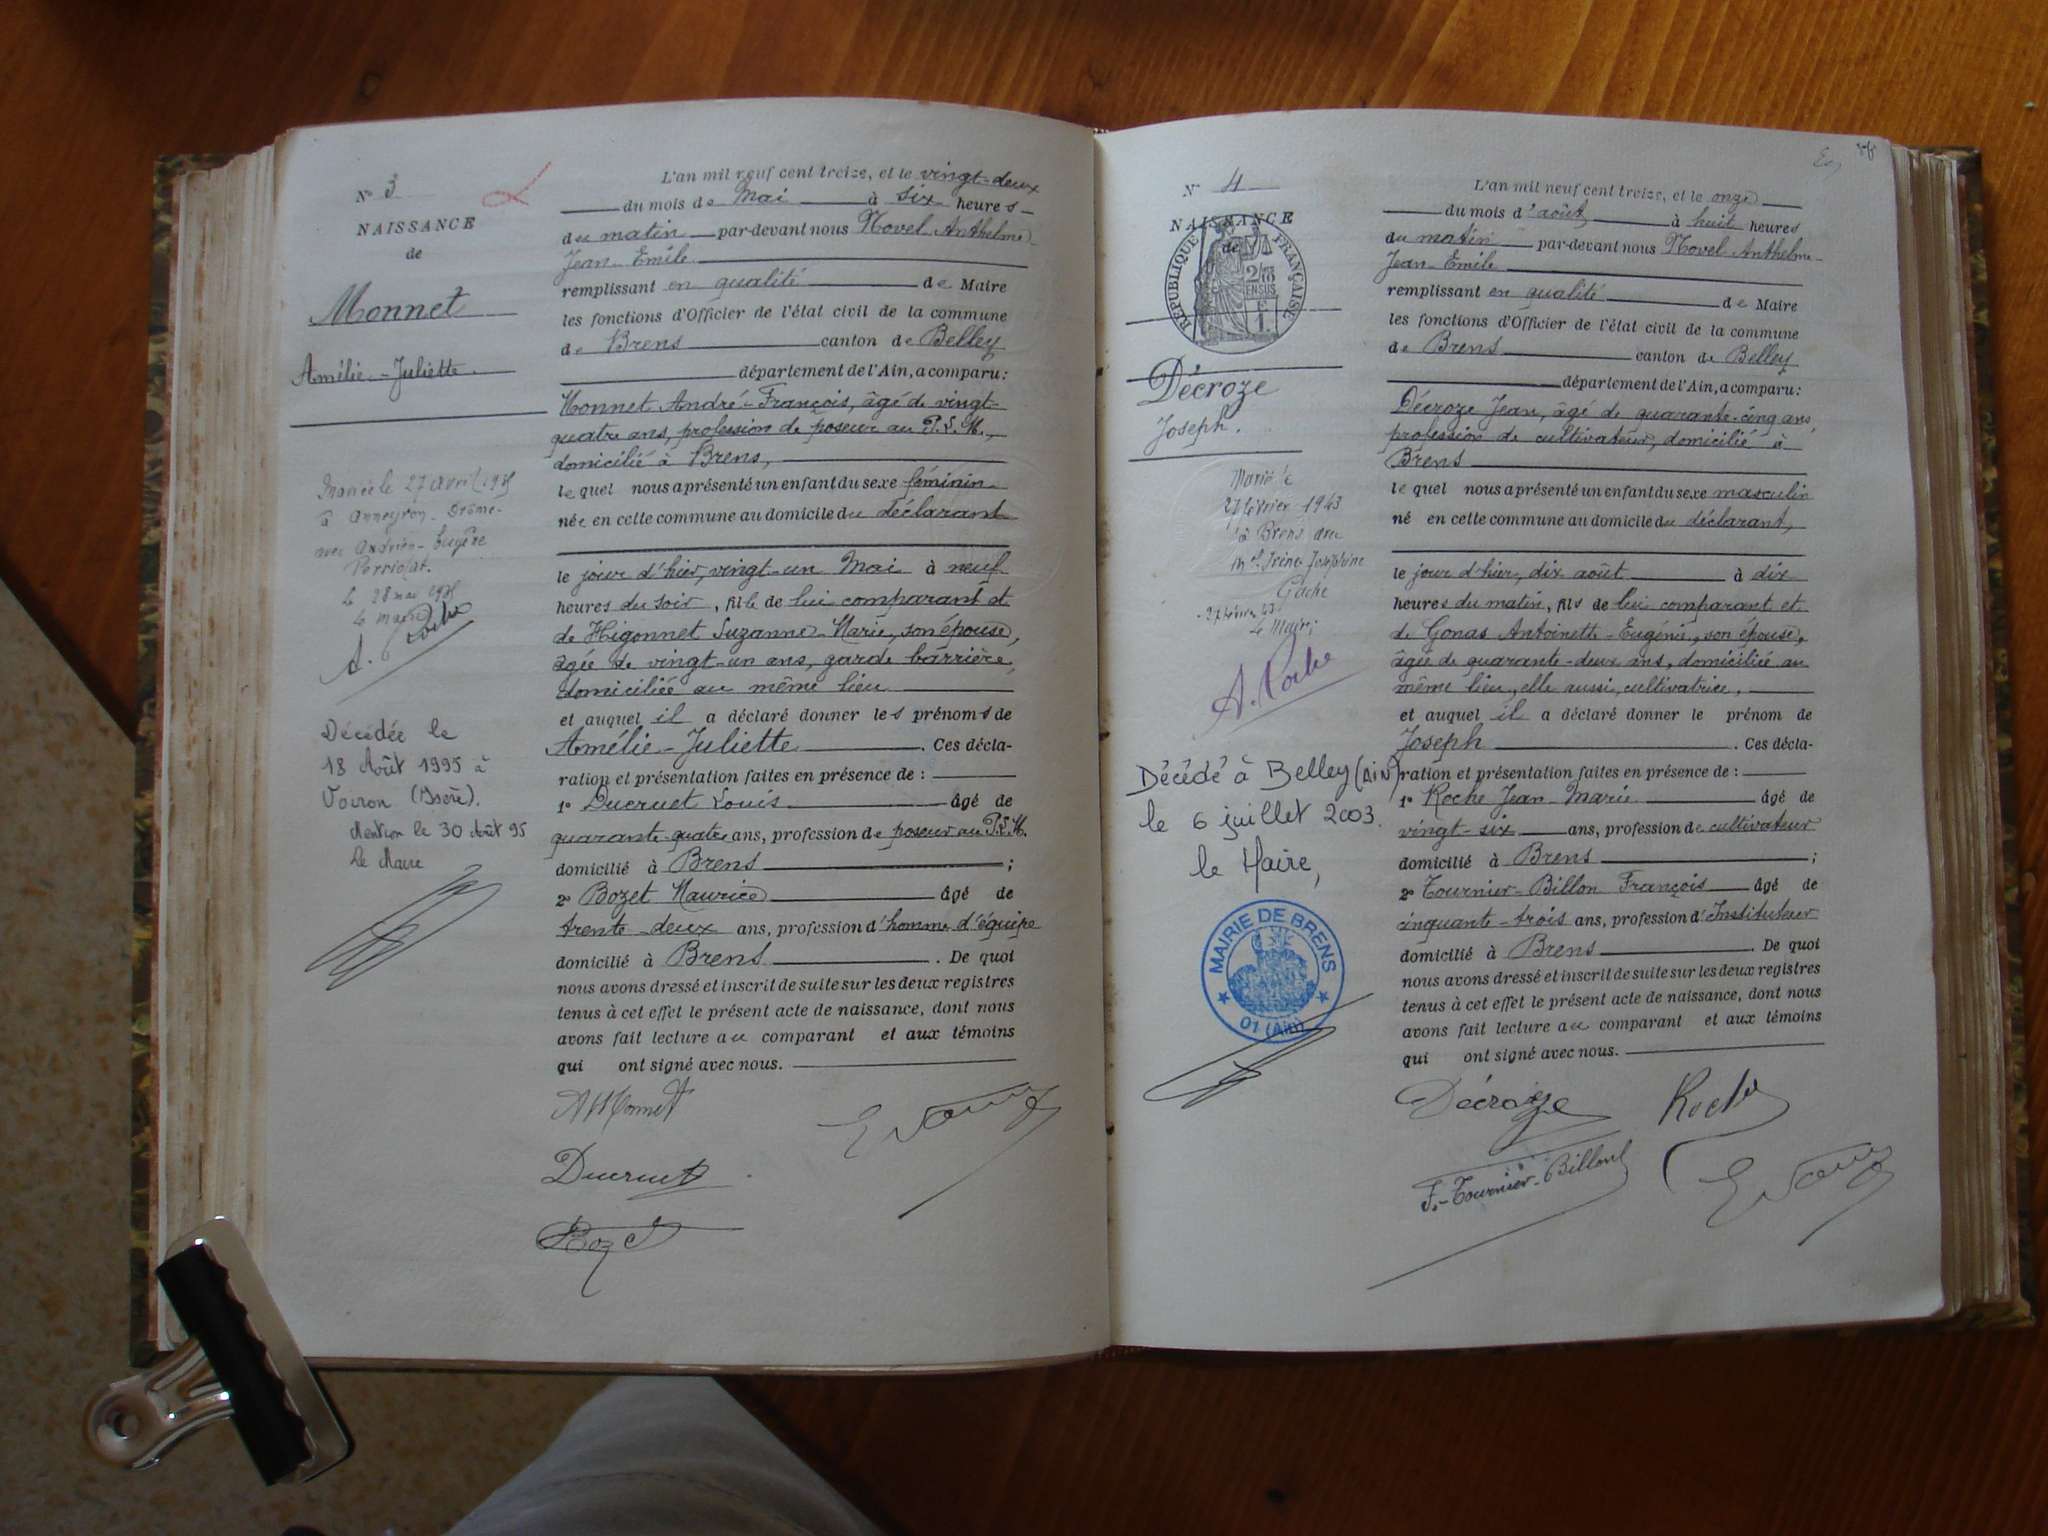 N° 3
NAISSANCE
de
Monnet
Amélie-Juliette
Mariée le 27 avril
à Anneyron Drôme
avec
le 28 mai
le maire
Décédée le
18 Août 1995 à
Voiron (Isère).
Mention le 30 Août 95
Le Maire
L'an mil neuf cent treize, et le vingt-deux
du mois de Mai à six heures
du matin par-devant nous Novel Anthelme
Jean-Emile
remplissant en qualité de Maire
les fonctions d'Officier de l'état civil de la commune
de Brens canton de Belley
département de l'Ain, a comparu:
Monnet André-François, âgé de vingt-
quatre ans, profession de poseur au P.L.M.,
domicilié à Brens,
lequel nous a présenté un enfant du sexe féminin
née en cette commune au domicile du déclarant
le jour d'hier, vingt-un Mai à neuf
heures du soir, fille de lui comparant et
de Higonnet Suzanne-Marie, son épouse,
âgée de vingt-un ans, garde barrière,
domiciliée au même lieu
et auquel il a déclaré donner les prénoms de
Amélie-Juliette. Ces décla-
ration et présentation faites en présence de :
1° Ducruet Louis âgé de
quarante-quatre ans, profession de poseur au P.L.M.
domicilié à Brens ;
2° Bozet Maurice âgé de
trente-deux ans, profession d'homme d'équipe
domicilié à Brens. De quoi
nous avons dressé et inscrit de suite sur les deux registres
tenus à cet effet le présent acte de naissance, dont nous
avons fait lecture au comparant et aux témoins
qui ont signé avec nous.
Monnet
Ducruet
Bozet
N° 4
NAISSANCE
de
RÉPUBLIQUE FRANÇAISE
Décroze
Joseph.
Marié le
27 février 1943
à Brens avec
Mlle Irène Joséphine
Gache
le Maire
Décédé à Belley (Ain)
le 6 juillet 2003.
le Maire,
MAIRIE DE BRENS
01 (Ain)
L'an mil neuf cent treize, et le onze
du mois d'août à huit heures
du matin par-devant nous Novel Anthelme
Jean-Emile
remplissant en qualité de Maire
les fonctions d'Officier de l'état civil de la commune
de Brens canton de Belley
département de l'Ain, a comparu:
Décroze Jean, âgé de quarante-cinq ans,
profession de cultivateur, domicilié à
Brens
lequel nous a présenté un enfant du sexe masculin
né en cette commune au domicile du déclarant,
le jour d'hier, dix août à dix
heures du matin, fils de lui comparant et
de Gonas Antoinette-Eugénie, son épouse,
âgée de quarante-deux ans, domiciliée au
même lieu, elle aussi, cultivatrice,
et auquel il a déclaré donner le prénom de
Joseph. Ces décla-
ration et présentation faites en présence de :
1° Roche Jean-Marie âgé de
vingt-six ans, profession de cultivateur
domicilié à Brens ;
2° Tournier-Billon François âgé de
cinquante-trois ans, profession d'Instituteur
domicilié à Brens. De quoi
nous avons dressé et inscrit de suite sur les deux registres
tenus à cet effet le présent acte de naissance, dont nous
avons fait lecture au comparant et aux témoins
qui ont signé avec nous.
Décroze Roche
F. Tournier-Billon